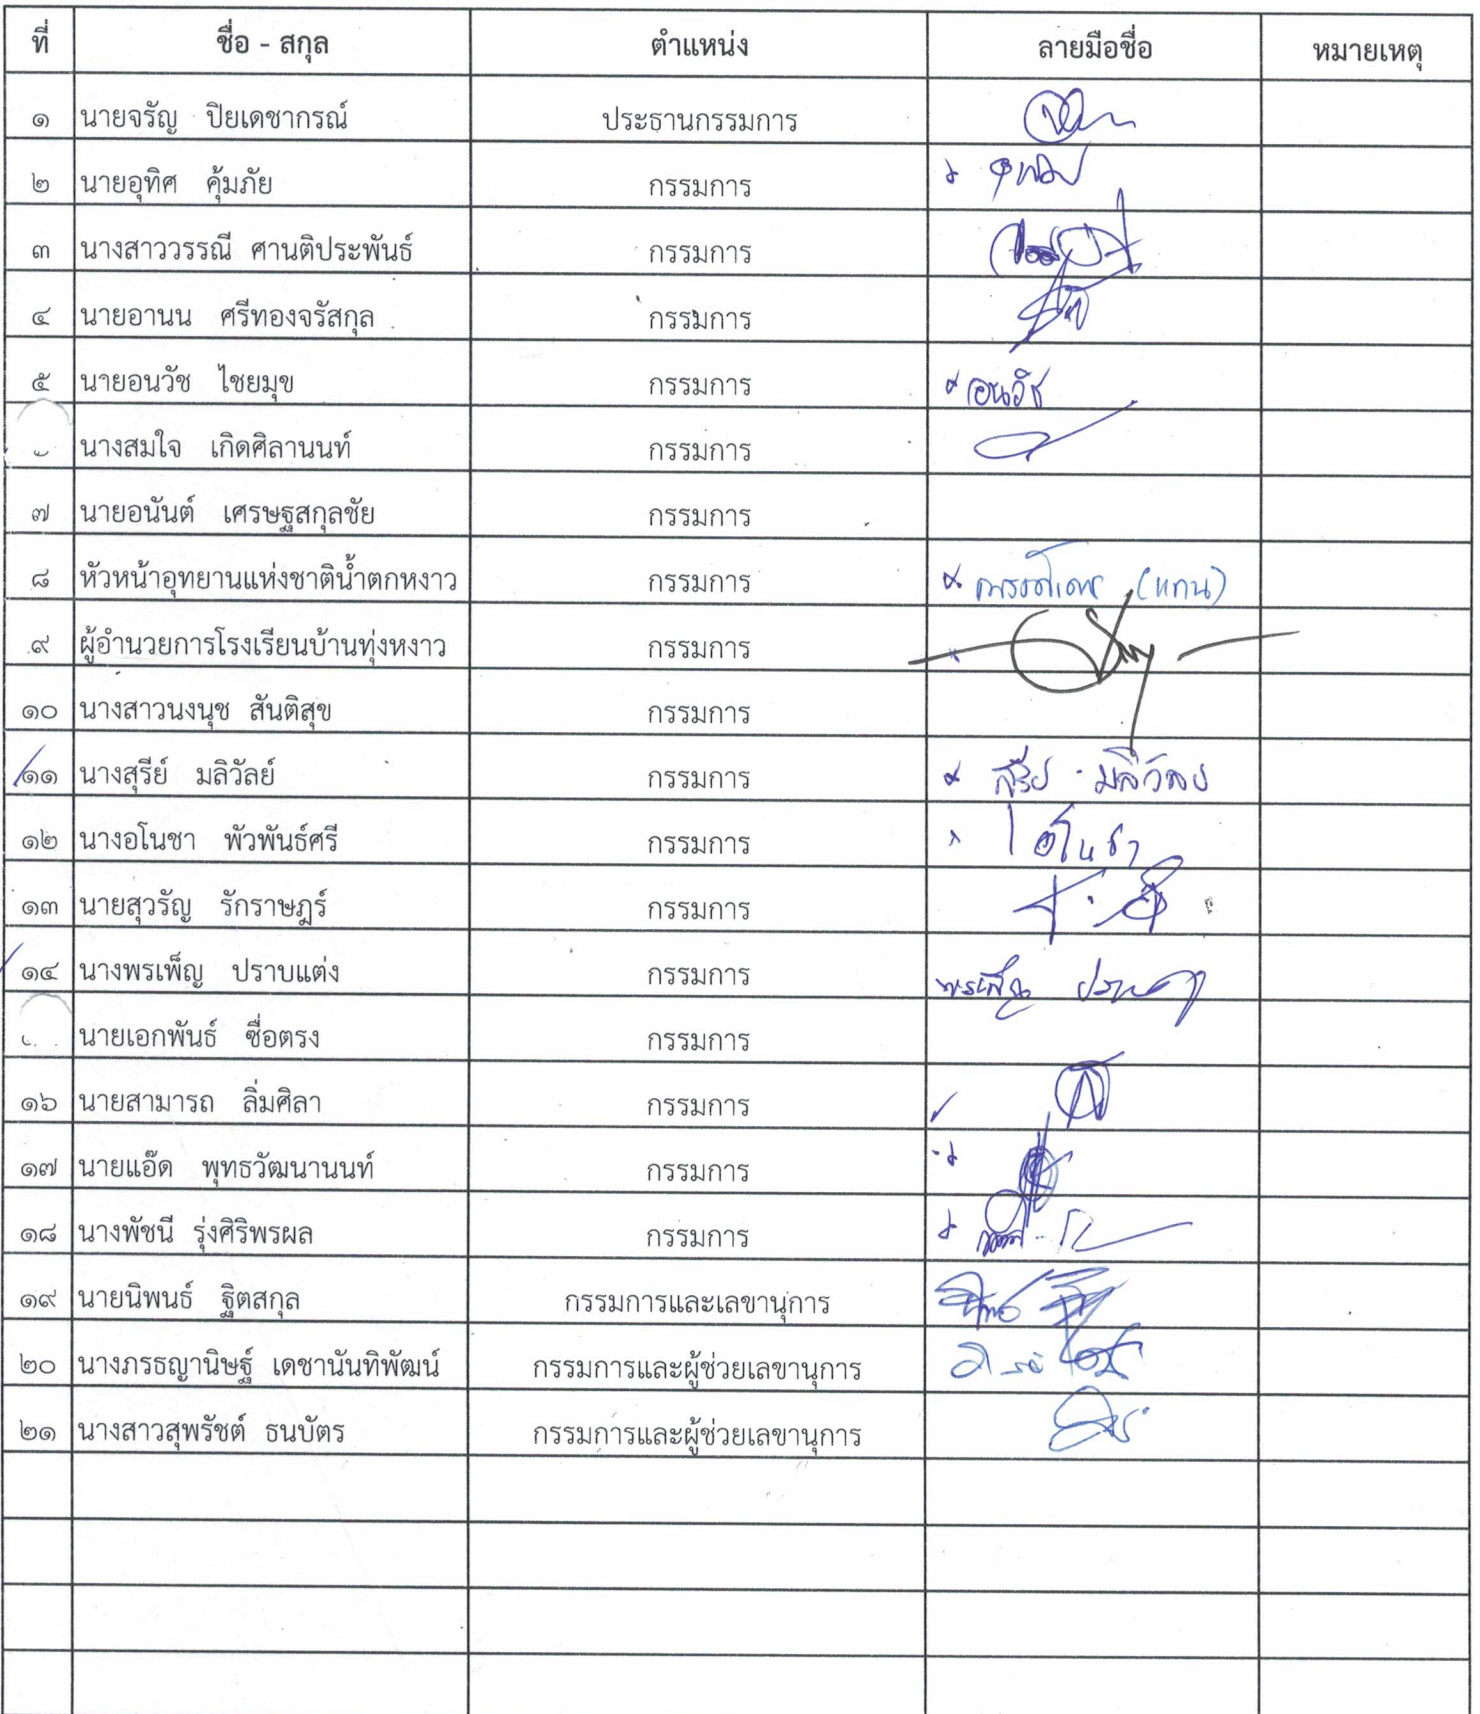 ที่ ชื่อ - สกุล ตำแหน่ง ลายมือชื่อ หมายเหตุ
๑ นายจรัญ ปิยเดชากรณ์ ประธานกรรมการ
๒ นายอุทิศ คุ้มภัย กรรมการ
๓ นางสาววรรณี ศานติประพันธ์ กรรมการ
๔ นายอานน ศรีทองจรัสกุล กรรมการ
๕ นายอนวัช ไชยมุข กรรมการ อนวัช
นางสมใจ เกิดศิลานนท์ กรรมการ
๗ นายอนันต์ เศรษฐสกุลชัย กรรมการ
๘ หัวหน้าอุทยานแห่งชาติน้ำตกหงาว กรรมการ (แทน)
๙ ผู้อำนวยการโรงเรียนบ้านทุ่งหงาว กรรมการ
๑๐ นางสาวนงนุช สันติสุข กรรมการ
๑๑ นางสุรีย์ มลิวัลย์ กรรมการ
๑๒ นางอโนชา พัวพันธ์ศรี กรรมการ
๑๓ นายสุวรัญ รักราษฎร์ กรรมการ
๑๔ นางพรเพ็ญ ปราบแต่ง กรรมการ
นายเอกพันธ์ ซื่อตรง กรรมการ
๑๖ นายสามารถ ลิ่มศิลา กรรมการ
๑๗ นายแอ๊ด พุทธวัฒนานนท์ กรรมการ
๑๘ นางพัชนี รุ่งศิริพรผล กรรมการ
๑๙ นายนิพนธ์ ฐิตสกุล กรรมการและเลขานุการ
๒๐ นางภรธญานิษฐ์ เดชานันทิพัฒน์ กรรมการและผู้ช่วยเลขานุการ
๒๑ นางสาวสุพรัชต์ ธนบัตร กรรมการและผู้ช่วยเลขานุการ